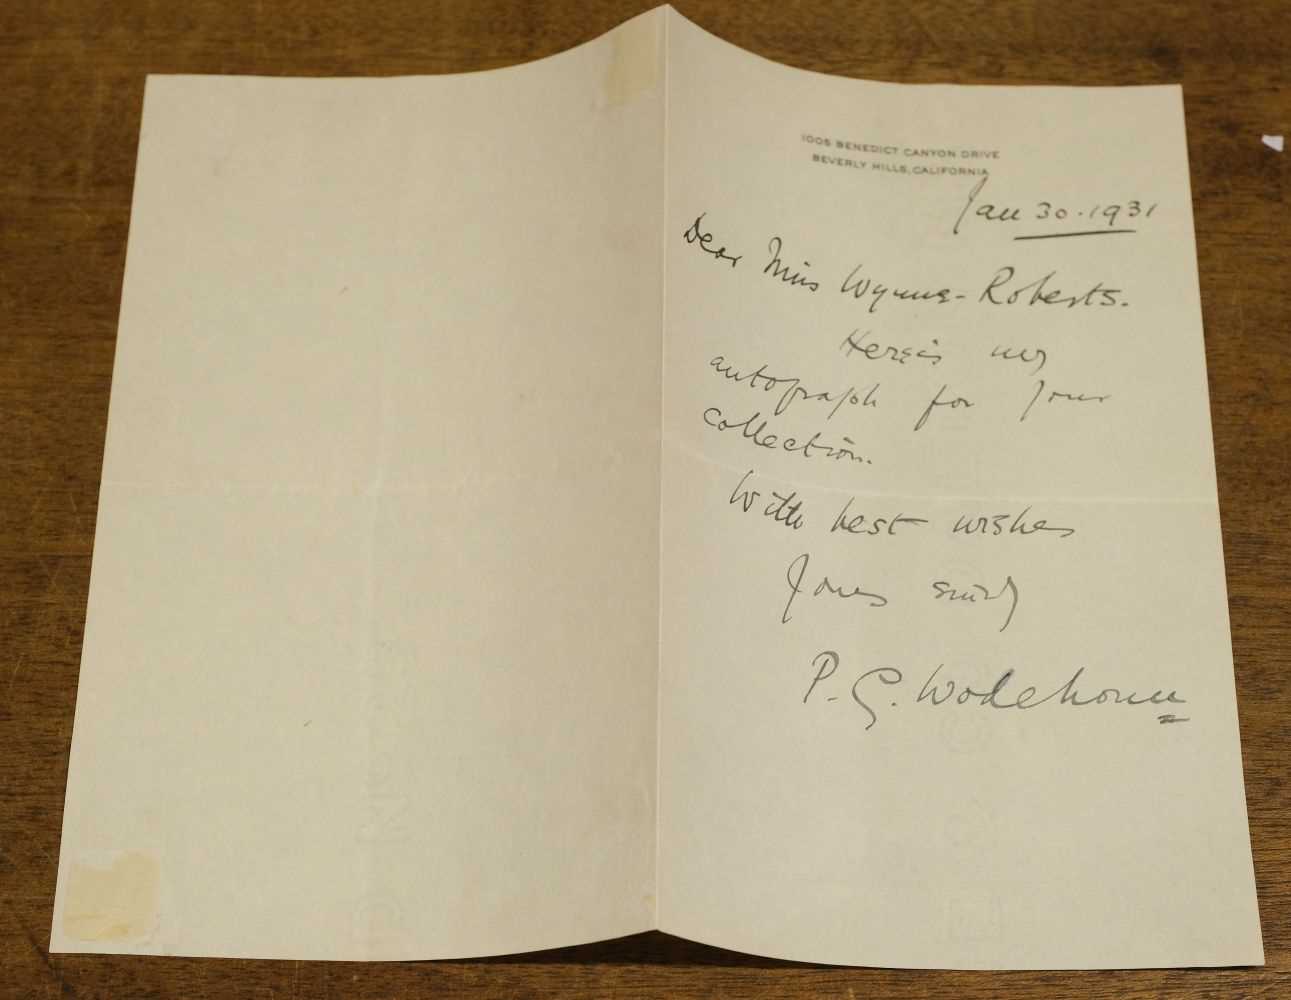 1005 BENEDICT CANYON DRIVE
BEVERLY HILLS, CALIFORNIA
Jan 30. 1931
Dear Miss Wynne-Roberts.
Here is my
autograph for your
collection.
With best wishes
Yours sincerely
P. G. Wodehouse